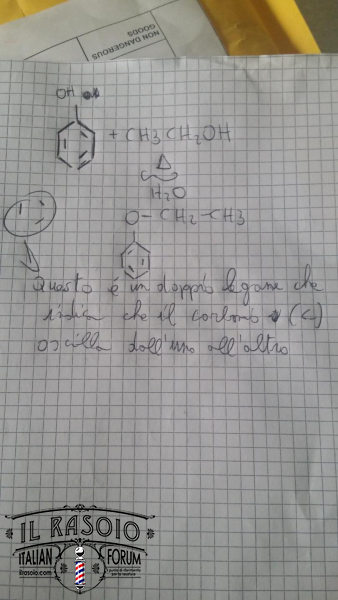 NON DANGEROUS
GOODS
OH
+ CH3 CH2OH
Δ
H2O
O- CH2 -CH3
Questo é un doppio legame che
indica che il carbonio (C)
oscilla dall'uno all'altro
IL RASOIO
ITALIAN FORUM
ilrasoio.com